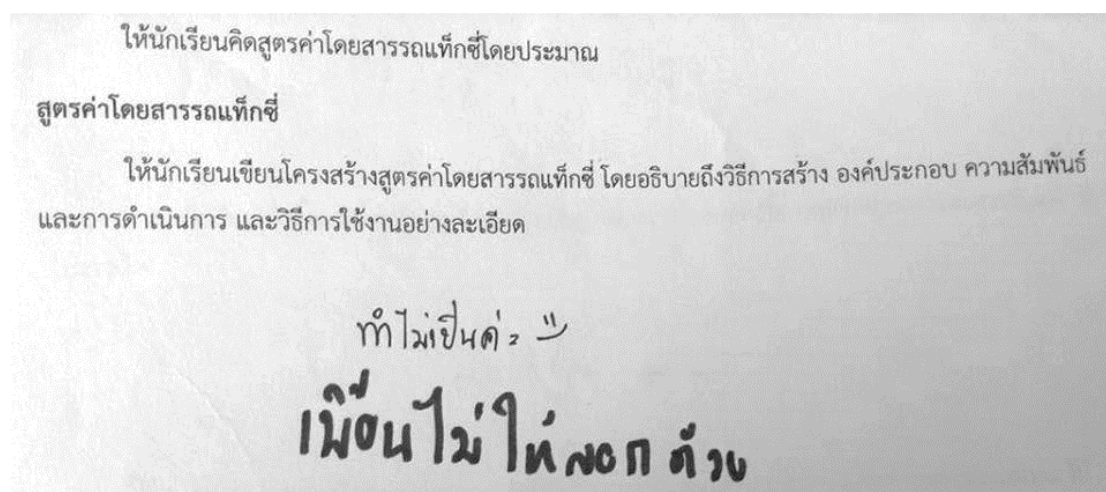 ให้นักเรียนคิดสูตรค่าโดยสารรถแท็กซี่โดยประมาณ
สูตรค่าโดยสารรถแท็กซี่
ให้นักเรียนเขียนโครงสร้างสูตรค่าโดยสารรถแท็กซี่ โดยอธิบายถึงวิธีการสร้าง องค์ประกอบ ความสัมพันธ์
และการดำเนินการ และวิธีการใช้งานอย่างละเอียด
ทำไม่เป็นค่ะ
เพื่อนไม่ให้ลอกด้วย